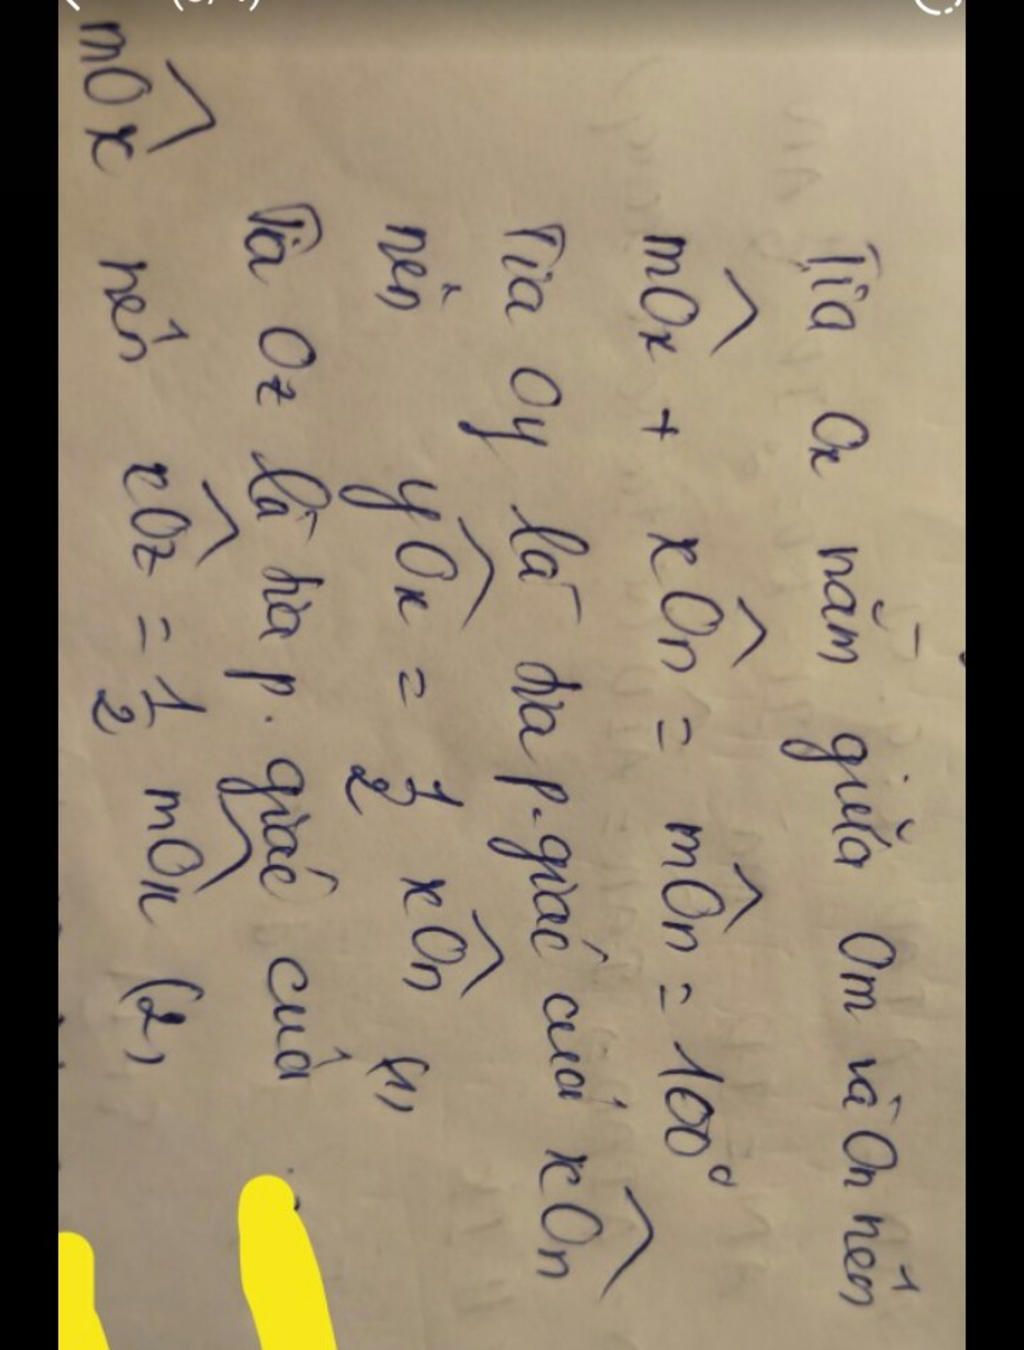 Tia Ox nằm giữa Om và On nên
mOx + xOn = mOn = 100°
Tia Oy là tia p.giác của xOn
nên yOx = 1/2 xOn (1)
Tia Oz là tia p.giác của
mOx nên xOz = 1/2 mOx (2)